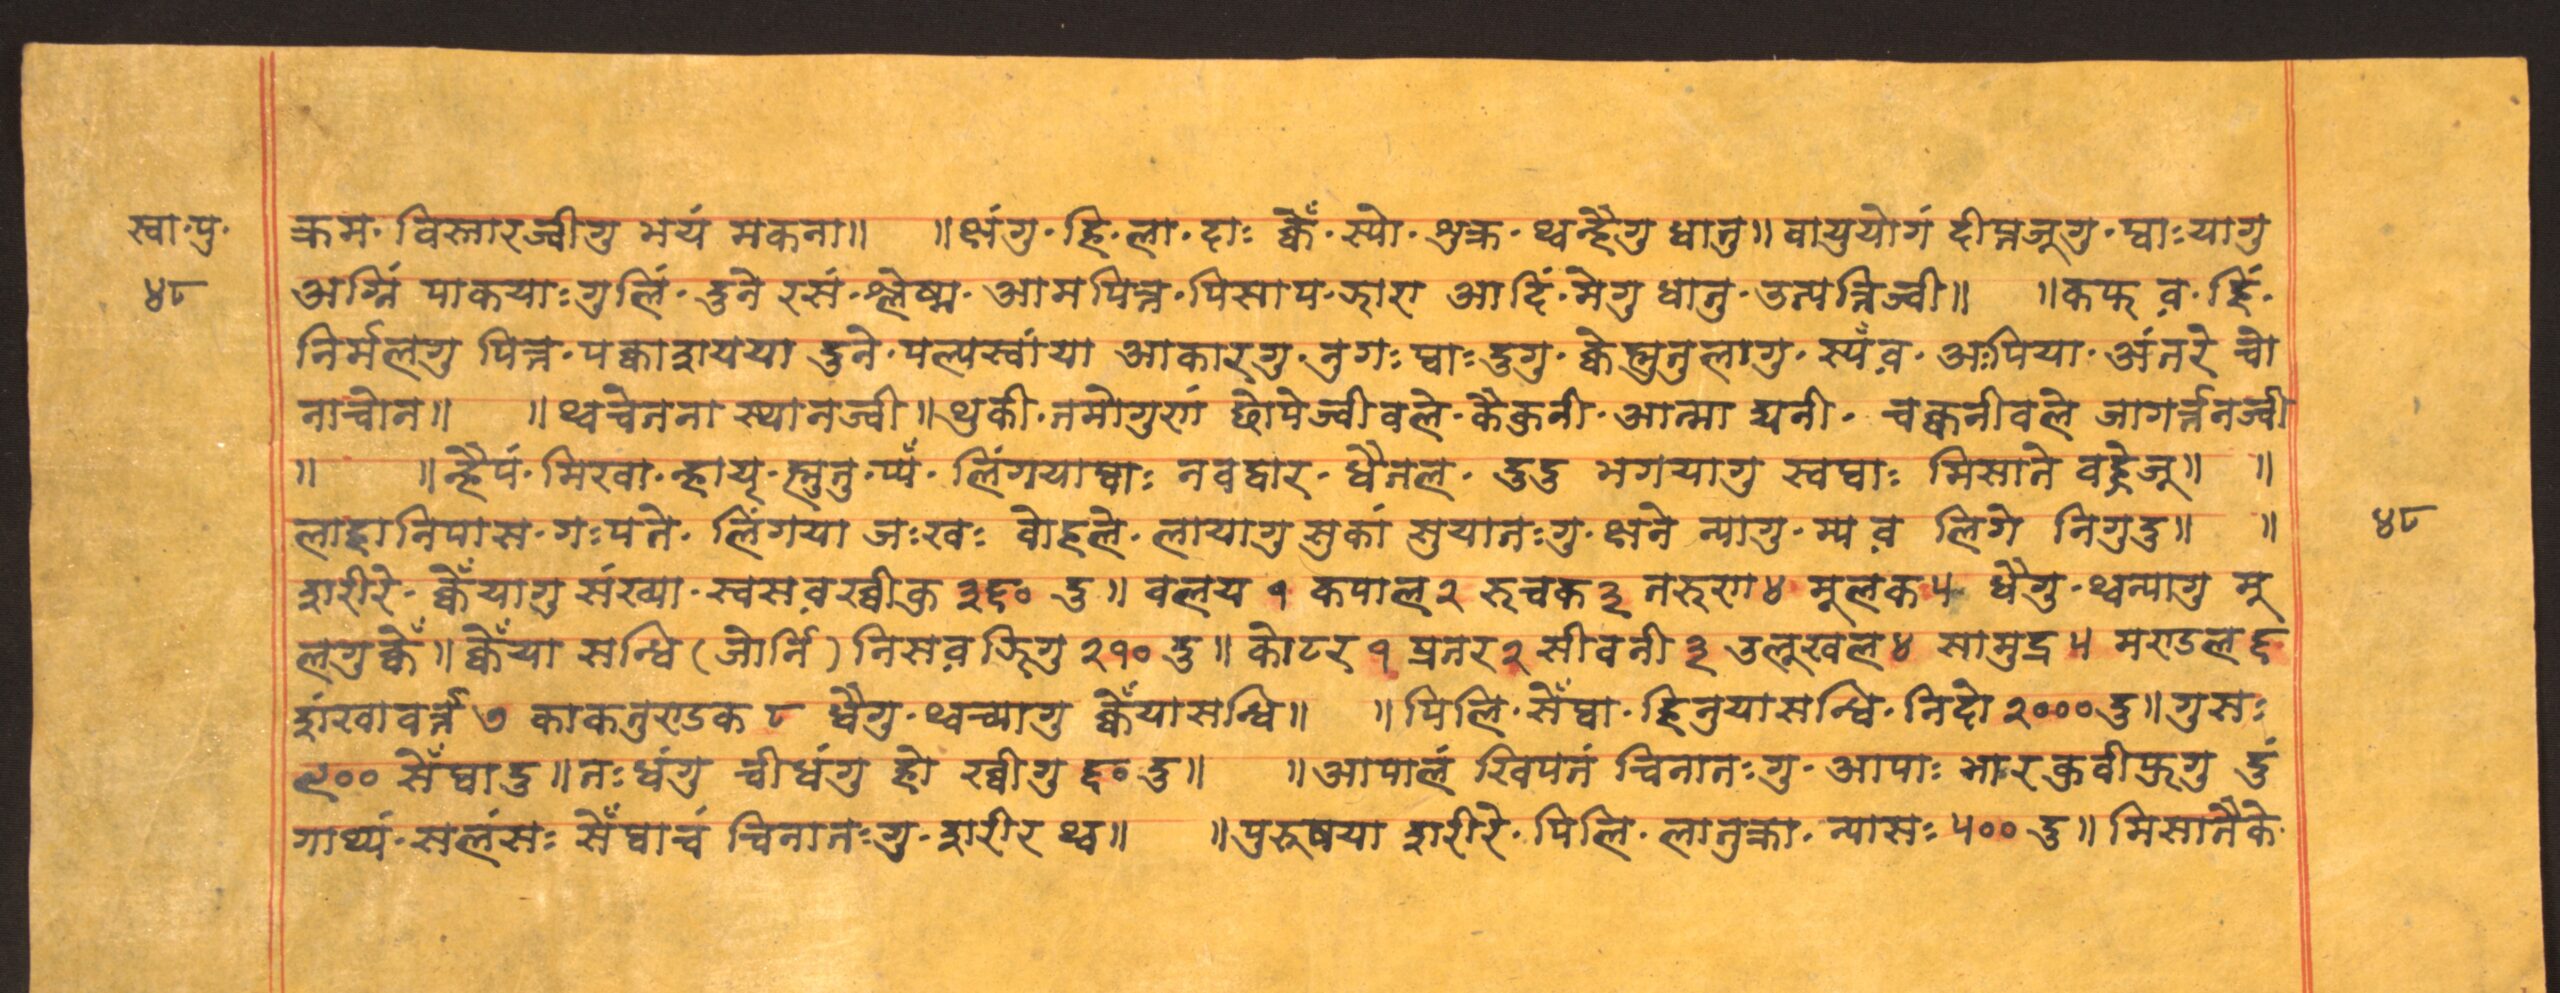 स्वा॰पु॰ क्रम॰ विस्तारज्वीगु भयं मकना॥ ॥क्षंगु॰ हि॰ ला॰ दाः क्वेँ॰ स्यो॰ शुक्र॰ थ्वन्हैगु धातु॥ वायुयोगं दीप्तजूगु॰ घाःयागु
४८ अग्निं पाकयाःगुलिं॰ दुने रसं॰ श्लेष्म॰ आमपित्त॰ पिसाप॰ झारा आदिं॰ मेगु धातु॰ उत्पन्निज्वी॥ ॥कफ व॰ हिं॰
निर्मलगु पित्त॰ पक्वाशयया दुने॰ पल्यस्वांया आकारगु॰ नुगः घाःदुगु॰ क्वेस्तुतुलागु॰ स्यँ व॰ अःपिया॰ अंतरे चो
नाचोन॥ ॥थ्वचेतना स्थानज्वी॥ थुकी॰ तमोगुणं छोपेज्वीवले॰ कैकुनी॰ आत्मा द्यनी॰ चकनीवले जागर्त्तनज्वी
॥ ॥न्हैपं॰ मिखा॰ न्हाय्॰ म्हुतु॰ प्यँ॰ लिंगयाघाः नवद्वार॰ धैतल॰ दुदु भगयागु स्वघाः मिसाते वढ्देजू॥ ॥
लाहानिपास॰ गःपते॰ लिंगया जःखः वोहले॰ लायागु सुकां सुयातःगु॰ क्षने न्यागु॰ म्य व लिंगे निगुदु॥ ॥ ४८
शरीरे॰ क्वेँयागु संख्या॰ स्वसव खीकु ३६० दु॥ वलय १ कपाल २ रुचक ३ तरुण ४ मूलक ५ धैगु॰ थ्वन्यागु मू
लगु क्वेँ॥ क्वेँया सन्धि (जोर्नि) निसव झिगु २१० दु॥ कोटर १ प्रतर २ सीवनी ३ उलूखल ४ सामुद्ग ५ मण्डल ६
शंखावर्त्त ७ काकतुण्डक ८ धैगु॰ थ्वच्यागु क्वेँयासन्धि॥ ॥पिलि॰ सेँघा॰ हिनुयासन्धि॰ निदो २००० दु॥ गुसः
९०० सेँघादु॥ तःधंगु चीधंगु ह्वो खीगु ६० दु॥ ॥आपालं खिपतं चिनातःगु॰ आपाः भार कुबीफूगु दुं
गाथ्यं॰ सलंसः सेँघाचं चिनातःगु॰ शरीर थ्व॥ ॥पुरुषया शरीरे॰ पिलि॰ लातुक्ता॰ न्यासः ५०० दु॥ मिसातैके॰